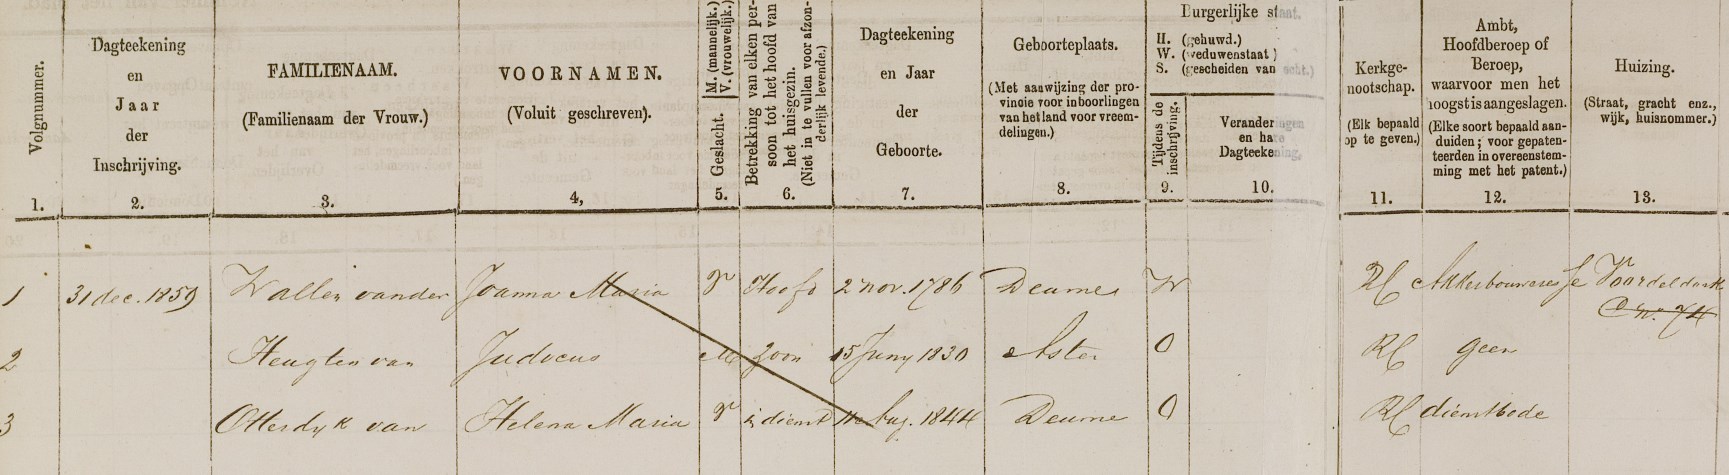 Volgnummer.
1.
Dagteekening
en
Jaar
der
Inschrijving.
2.
FAMILIENAAM.
(Familienaam der Vrouw.)
3.
VOORNAMEN.
(Voluit geschreven).
4,
Geslacht. M. (mannelijk.)
V. (vrouwelijk.)
5.
Betrekking van elken per-
soon tot het hoofd van
het huisgezin.
(Niet in te vullen voor afzon-
derlijk levende.)
6.
Dagteekening
en Jaar
der
Geboorte.
7.
Geboorteplaats.
(Met aanwijzing der pro-
vincie voor inboorlingen
van het land voor vreem-
delingen.)
8.
Burgerlijke staat.
H. (gehuwd.)
W. (weduwenstaat)
S. (gescheiden van echt.)
Tijdens de
inschrijving.
9.
Veranderingen
en hare
Dagteekening,
10.
Kerkge-
nootschap.
(Elk bepaald
op te geven.)
11.
Ambt,
Hoofdberoep of
Beroep,
waarvoor men het
hoogst is aangeslagen.
(Elke soort bepaald aan-
duiden; voor gepaten-
teerden in overeenstem-
ming met het patent.)
12.
Huizing.
(Straat, gracht enz.,
wijk, huisnommer.)
13.
1 31 dec. 1859 Wallen vander Joanna Maria V Hoofd 2 nov. 1786 Deurne W RC Akkerbouweresse
C no. 74
2 Heugten van Judocus M Zoon 15 Juny 1830 Asten O RC geen
3 Otterdyk van Helena Maria V in dienst 1844 Deurne O RC dienstbode